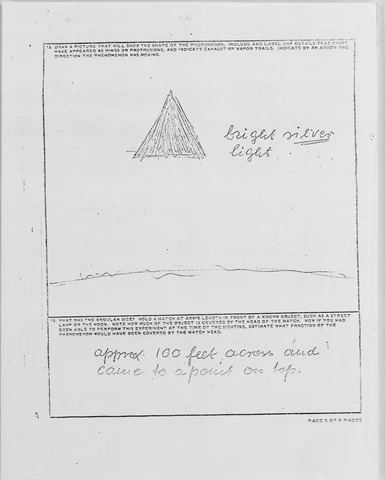 15. DRAW A PICTURE THAT WILL SHOW THE SHAPE OF THE PHENOMENON. INCLUDE AND LABEL ANY DETAILS THAT MIGHT
HAVE APPEARED AS WINGS OR PROTRUSIONS, AND INDICATE EXHAUST OR VAPOR TRAILS. INDICATE BY AN ARROW THE
DIRECTION THE PHENOMENON WAS MOVING.
bright silver
light
16. WHAT WAS THE ANGULAR SIZE? HOLD A MATCH AT ARM'S LENGTH IN FRONT OF A KNOWN OBJECT, SUCH AS A STREET
LAMP OR THE MOON. NOTE HOW MUCH OF THE OBJECT IS COVERED BY THE HEAD OF THE MATCH. NOW IF YOU HAD
BEEN ABLE TO PERFORM THIS EXPERIMENT AT THE TIME OF THE SIGHTING, ESTIMATE WHAT FRACTION OF THE
PHENOMENON WOULD HAVE BEEN COVERED BY THE MATCH HEAD.
approx. 100 feet across and
came to a point on top.
PAGE 5 OF PAGES